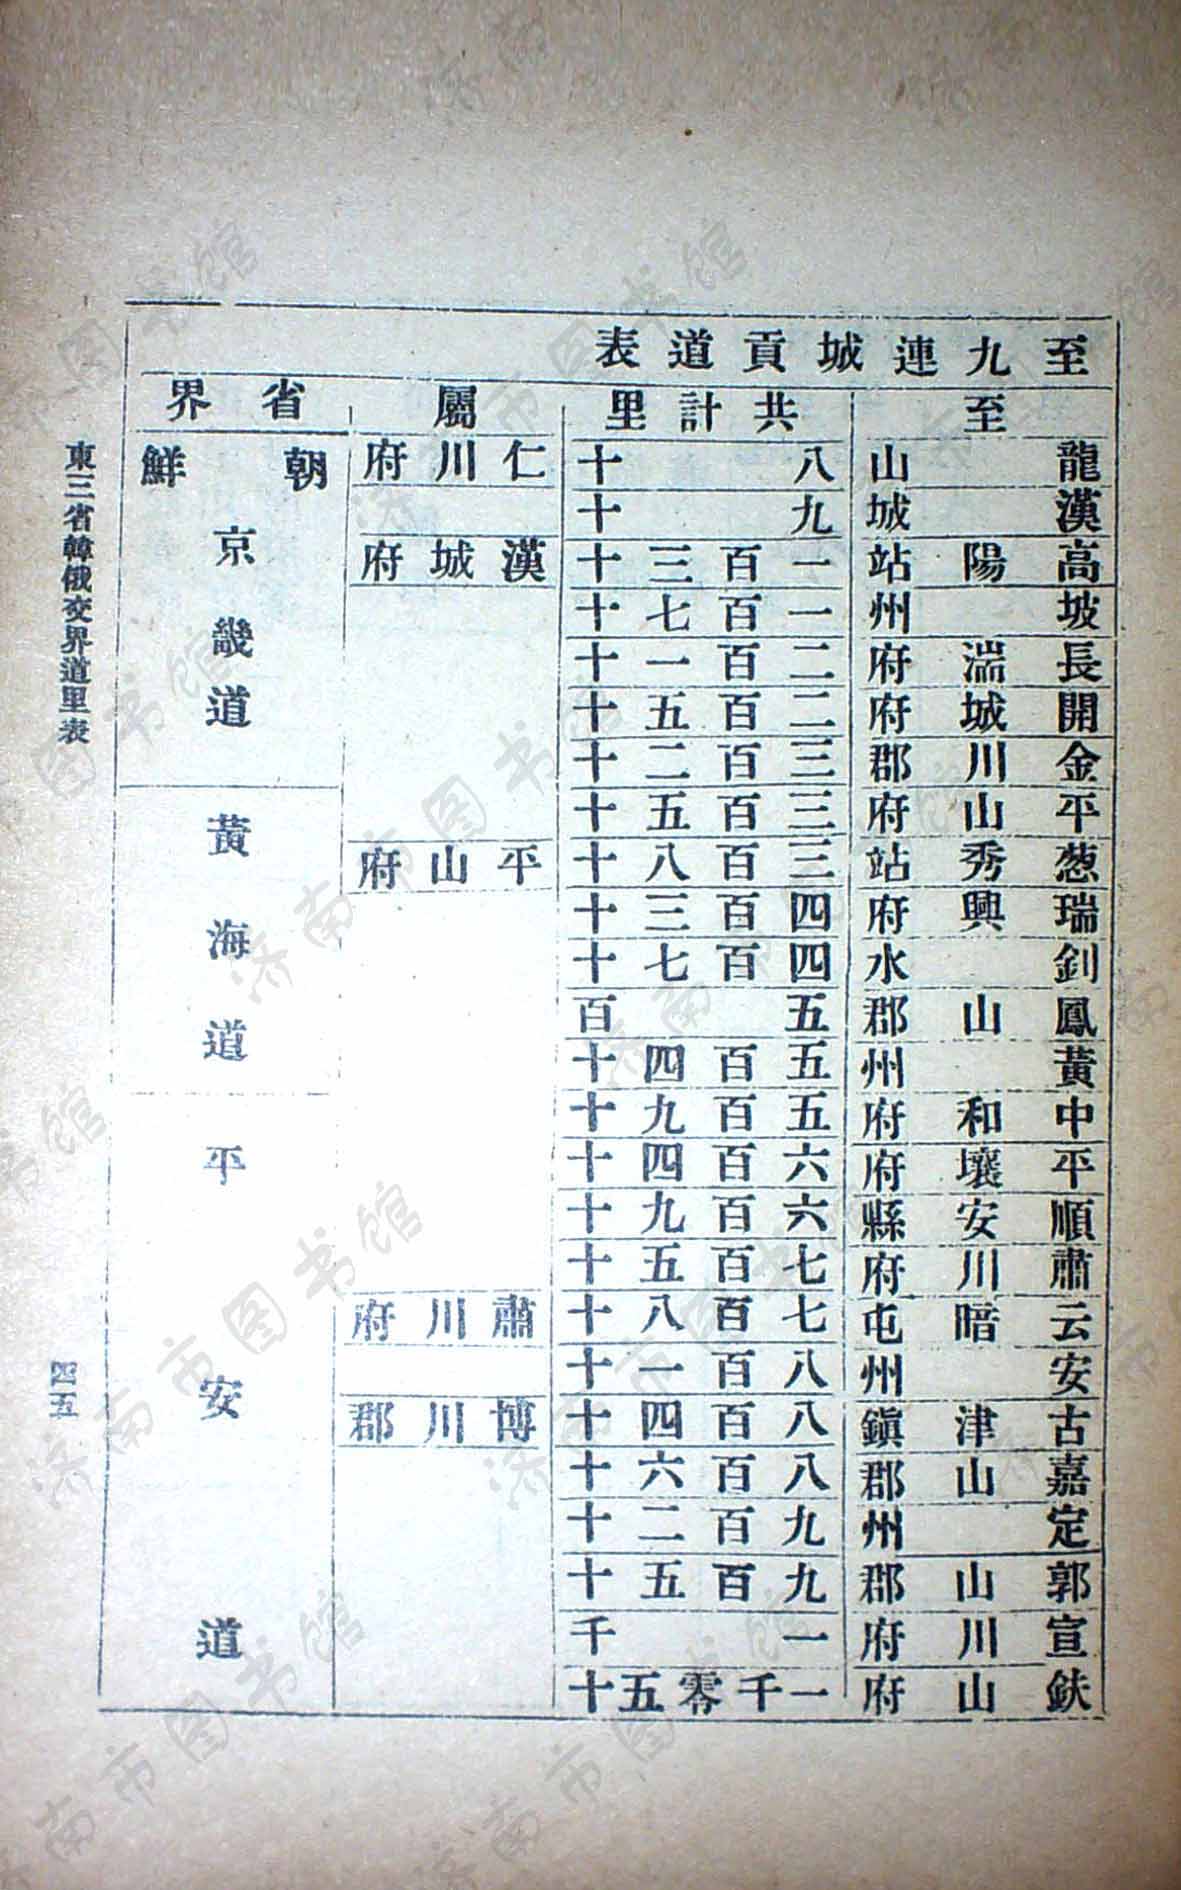 至九連城貢道表
至 共計里 屬 省界
龍山 八十 仁川府 朝鮮
漢城 九十
高陽站 一百三十 漢城府 京畿道
坡州 一百七十
長湍府 二百一十
開城府 二百五十
金川郡 三百二十
平山府 三百五十 黃海道
葱秀站 三百八十 平山府
瑞興府 四百三十
釗水 四百七十
鳳山郡 五百
黃州 五百四十
中和府 五百九十 平安道
平壤府 六百四十
順安縣 六百九十
肅川府 七百五十
云暗屯 七百八十 肅川府
安州 八百一十
古津鎭 八百四十 博川郡
嘉山郡 八百六十
定州 九百二十
郭山郡 九百五十
宣川府 一千
鈇山府 一千零五十
東三省韓俄交界道里表
四五
济南市图书馆